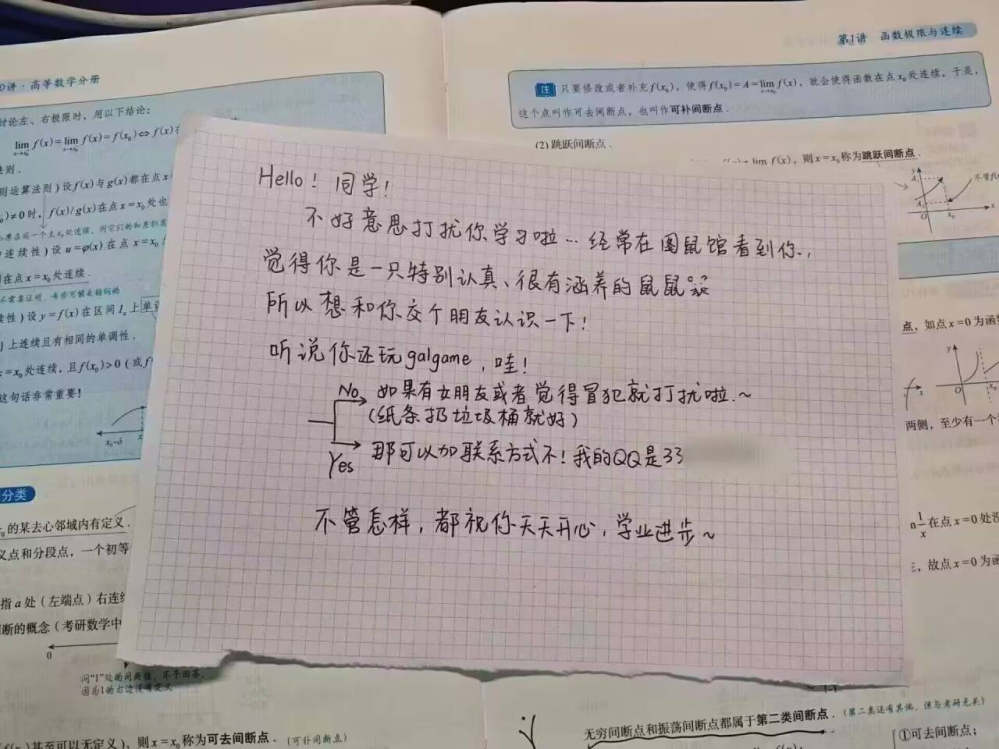 讲·高等数学分册
第1讲 函数极限与连续
讨论左、右极限时，用以下结论：
lim f(x)=lim f(x)=f(x₀)⇔f(x)
则运算法则）设f(x)与g(x)都在点x
)≠0时，f(x)/g(x)在点x=x₀处也
连续性）设u=φ(x)在点x=x₀
在点x=x₀处连续．
续性）设y=f(x)在区间Iₓ上单调
上连续且有相同的单调性．
=x₀处连续，且f(x₀)>0（或f
这句话非常重要！
x₀-δ
分类
的某去心邻域内有定义．
义点和分段点，一个初等
指a处（左端点）右连续
断的概念（考研数学中
0
因为1的右边没有定义
甚至可以无定义），则x=x₀称为可去间断点．（可补间断点）
注 只要修改或者补充f(x₀)，使得f(x₀)=A=lim f(x)，就会使得函数在点x₀处连续，于是，
这个点叫作可去间断点，也叫作可补间断点．
(2)跳跃间断点．
lim f(x)，则x=x₀称为跳跃间断点．
点，如点x=0为
两侧，至少有一个
1/x在点x=0处没
，故点x=0为
无穷间断点和振荡间断点都属于第二类间断点．（第二类还有其他，但与考研无关）
①可去间断点；
Hello！同学！
不好意思打扰你学习啦…经常在图鼠馆看到你，
觉得你是一只特别认真、很有涵养的鼠鼠
所以想和你交个朋友认识一下！
听说你还玩galgame，哇！
No 如果有女朋友或者觉得冒犯就打扰啦.~
（纸条扔垃圾桶就好）
Yes 那可以加联系方式不！我的QQ是33
不管怎样，都祝你天天开心，学业进步~